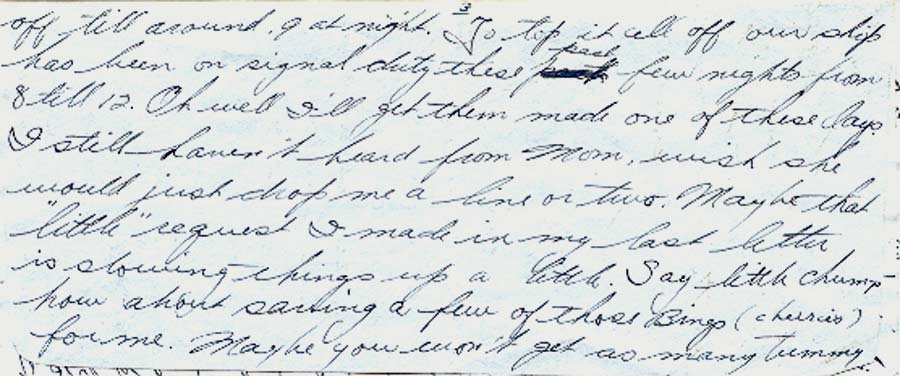 3
off till around 9 at night. To top it all off our ship
has been on signal duty these past few nights from
8 till 12. Oh well I'll get them made one of these days
I still haven't heard from Mom, wish she
would just drop me a line or two. Maybe that
"little" request I made in my last letter
is slowing things up a little. Say little chump
how about saving a few of those Bings (cherries)
for me. Maybe you won't get as many tummy